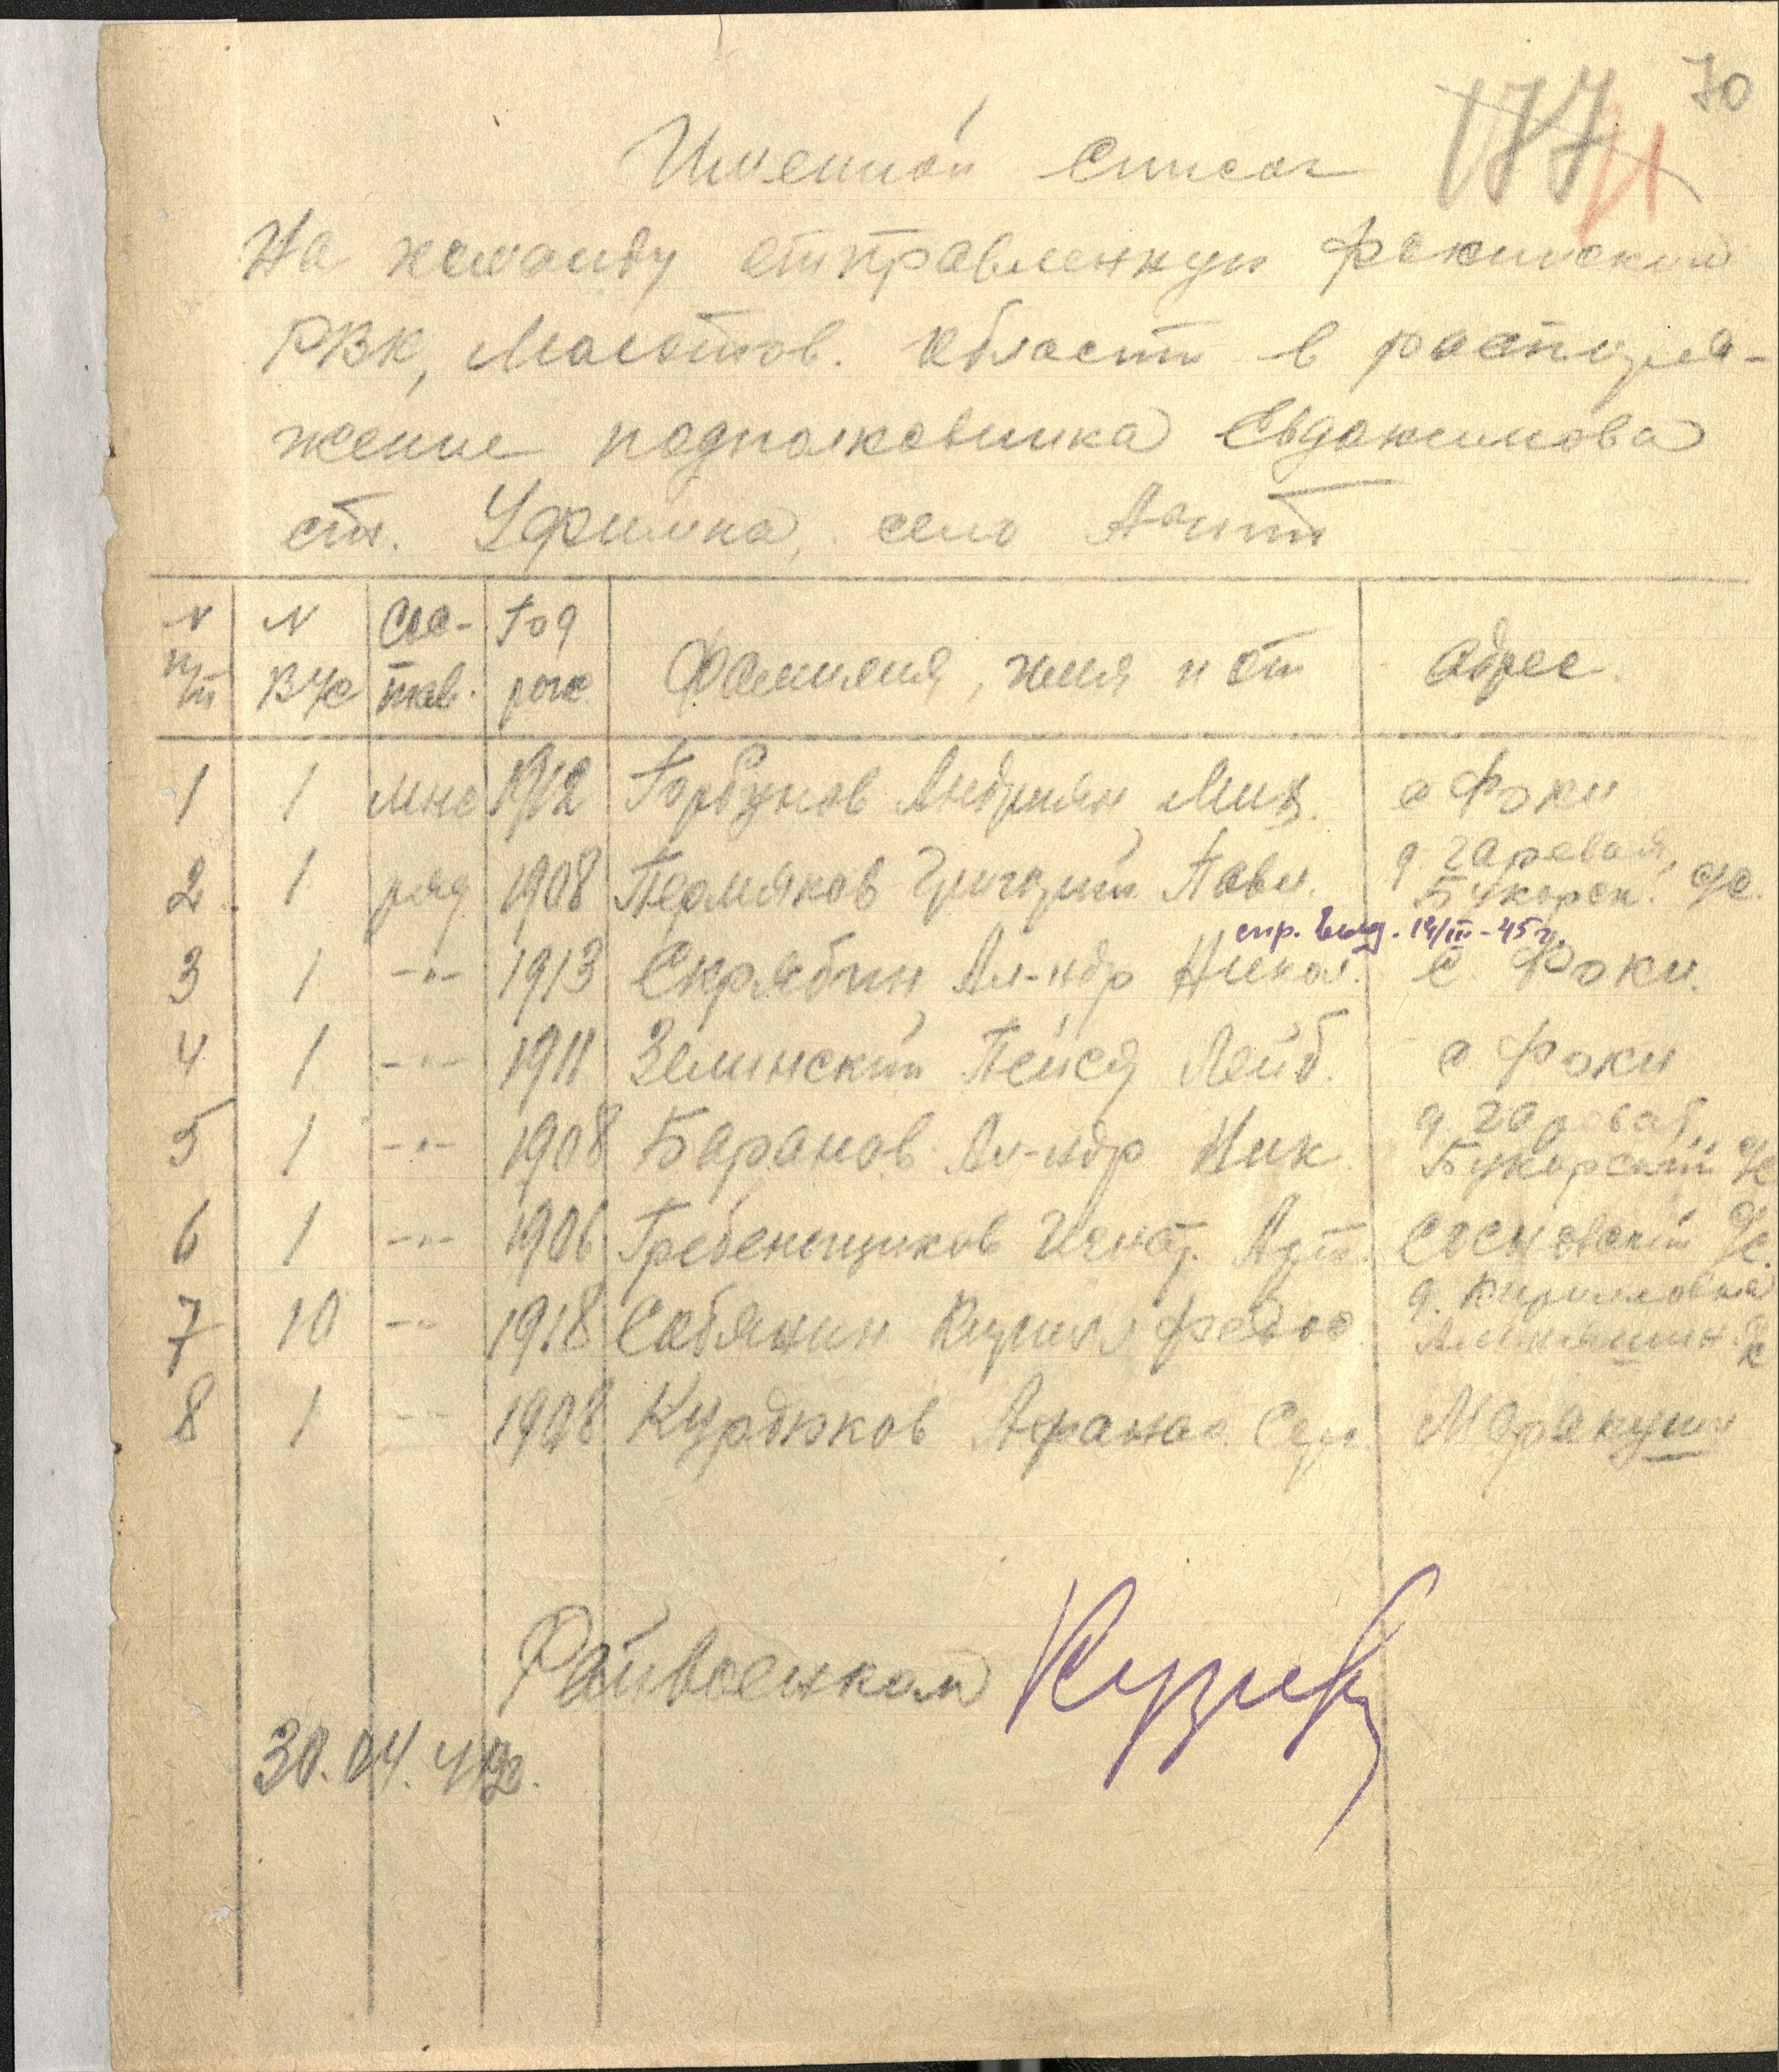 70
177
71
Именной список
На команду отправленную Фокинским
РВК, Молотов. области в распоря-
жение подполковника Евдокимова
ст. Уфимка, село Ачит
N п/п | N ВУС | Сос-тав. | Год рож | Фамилия, имя и от | Адрес.
1 | 1 | мнс | 1912 | Горбунов Андриян Мих. | с Фоки
2. | 1 | ряд | 1908 | Пермяков Григорий Павл. | д. Гаревая, Букорск. с/с.
спр. выд. 14/III-45 г.
3 | 1 | -"- | 1913 | Скрябин Ал-ндр Никол. | с. Фоки.
4 | 1 | -"- | 1911 | Зелинский Пейся Лейб. | с Фоки
5 | 1 | -"- | 1908 | Баранов Ал-ндр Ник | д. Гаревая, Букорский с/с
6 | 1 | -"- | 1906 | Гребенщиков Игнат. Арт. | Сосновский с/с.
7 | 10 | -"- | 1918 | Собянин Кирил Федос. | д. Кирилловка с/с
8 | 1 | -"- | 1908 | Курдюков Афанас. Сер. | Маракуши
Райвоенком
30.04.42г.